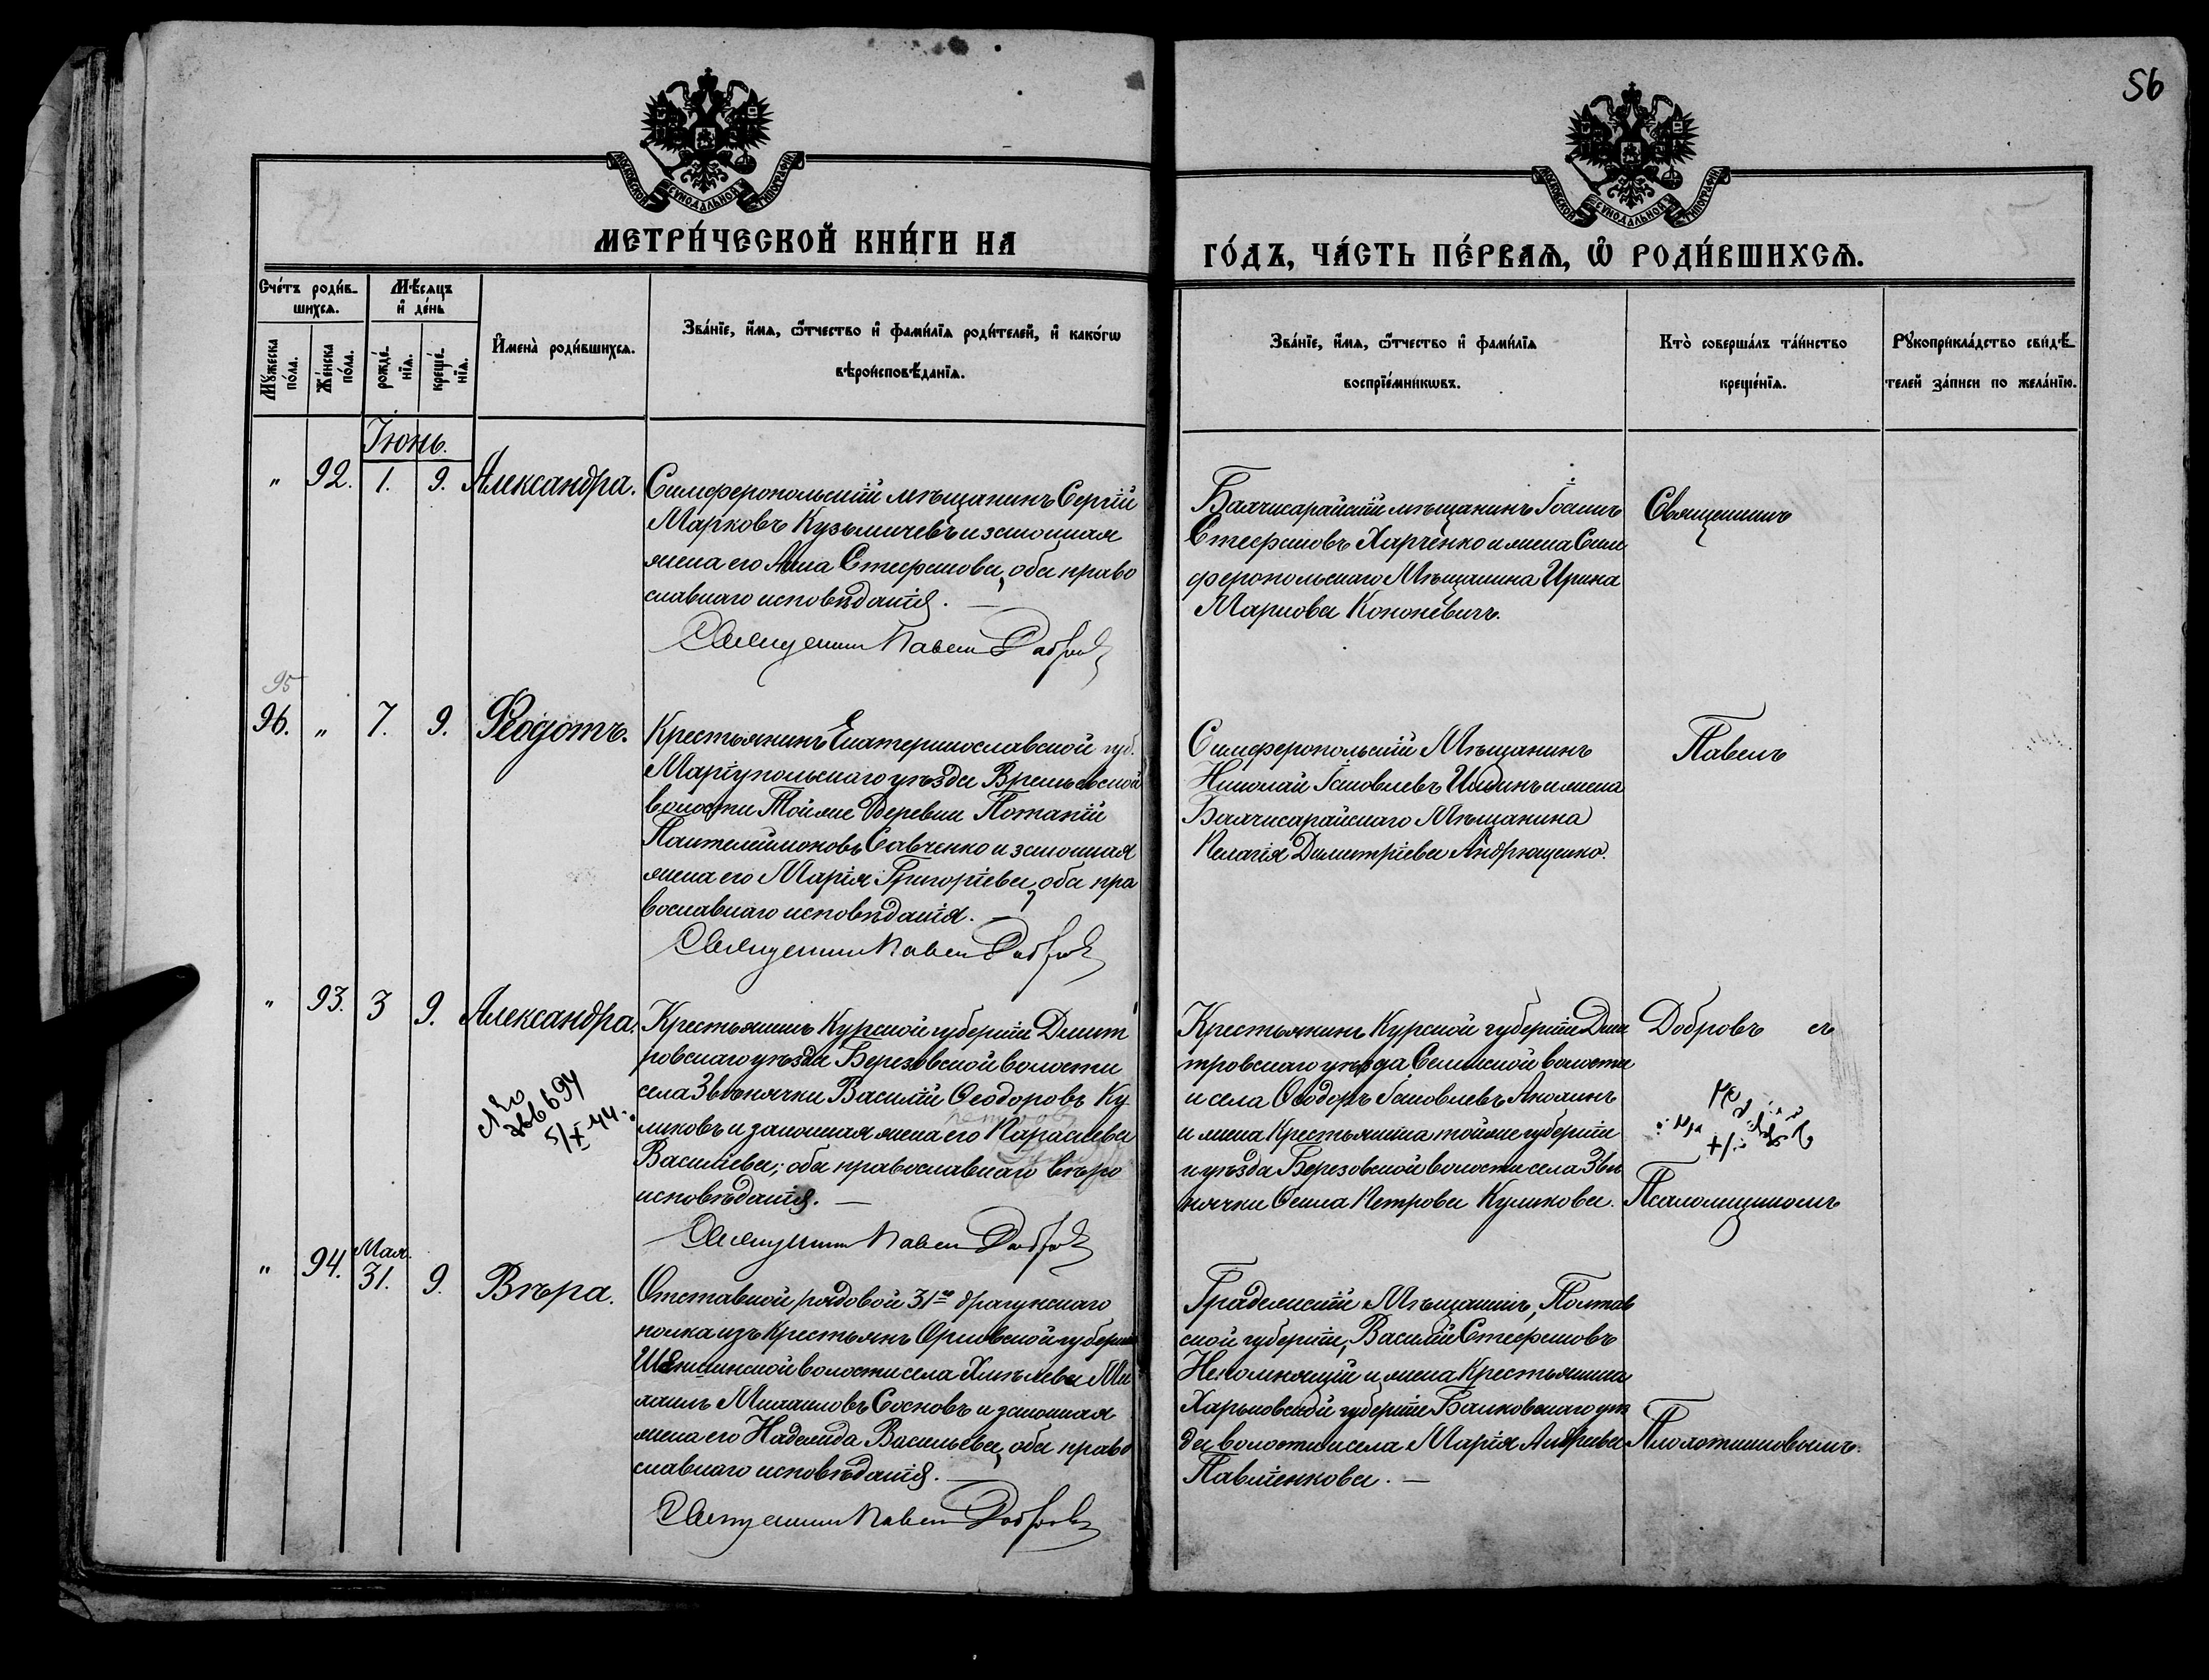 56
МОСКОВСКОЙ СѴНОДАЛЬНОЙ ТИПОГРАФІИ
МОСКОВСКОЙ СѴНОДАЛЬНОЙ ТИПОГРАФІИ
МЕТРИ́ЧЕСКОЙ КНИ́ГИ НА
ГО́ДЪ, ЧА́СТЬ ПЕ́РВАѦ, Ѡ РОДИ́ВШИХСѦ.
Сче́тъ роди́в-
шихсѧ.
Мѣ́сѧцъ
и҆ де́нь
Мꙋ́жеска
по́ла.
Же́нска
по́ла.
рожде́-
нїѧ.
креще́-
нїѧ.
И҆мена̀ роди́вшихсѧ.
Зва́нїе, и҆́мѧ, ѻ҆́тчество и҆ фами́лїѧ роди́телей, и҆ како́гѡ
вѣроисповѣ́данїѧ.
Зва́нїе, и҆́мѧ, ѻ҆́тчество и҆ фами́лїѧ
воспрїе́мникѡвъ.
Кто̀ соверша́лъ та́инство
креще́нїѧ.
Рꙋкоприкла́дство свидѣ́-
телей за́писи по жела́нїю.
Іюнь.
" 92. 1. 9. Александра.
Симферопольскій мѣщанинъ Сергій
Марковъ Кузьмичевъ и законная
жена его Анна Стефанова, оба право
славнаго исповѣданія. —
Священникъ Павелъ Добровъ
Бахчисарайскій мѣщанинъ Іоаннъ
Стефановъ Харченко и жена Сим
феропольскаго Мѣщанина Ирина
Маркова Кононевичъ.
Священникъ
95
96. " 7. 9. Ѳеодотъ.
Крестьянинъ Екатеринославской губ.
Маріупольскаго уѣзда Времьевской
волости Тойже Деревни Потапій
Пантелеймоновъ Савченко и законная
жена его Марія Григоріева, оба пра
вославнаго исповѣданія. —
Священникъ Павелъ Добровъ
Симферопольскій Мѣщанинъ
Николай Іаковлевъ и жена
Бахчисарайскаго Мѣщанина
Пелагія Димитріева Андрющенко.
Павелъ
" 93. 3 9. Александра.
Крестьянинъ Курской губерніи Димит
ровскаго уѣзда Березовской волости
села Звѣнячки Василій Ѳеодоровъ Ку
ликовъ и законная жена его Параскева
Васильева; оба православнаго вѣро
исповѣданія. —
Священникъ Павелъ Добровъ
5/X 44.
Крестьянинъ Курской губерніи Дми
тровскаго уѣзда волости
и села Ѳеодоръ Іаковлевъ Анохинъ
и жена Крестьянина тойже губерніи
и уѣзда Березовской волости села Звѣ
нячки Петрова Куликова.
Добровъ съ
Псаломщикомъ
Мая.
" 94. 31. 9. Вѣра.
Отставной рядовой 31го драгунскаго
полка изъ Крестьянъ Орловской губерніи
волости села Ми
хаилъ Михаиловъ Сосновъ и законная
жена его Надежда Васильева, оба право
славнаго исповѣданія. —
Священникъ Павелъ Добровъ
Градижскій Мѣщанинъ, Полтав
ской губерніи, Василій Стефановъ
Непомнящій и жена Крестьянина
Харьковской губерніи Валковскаго уѣз
да волости и села Марія Андреева
Павленкова. —
Плохотниковымъ.